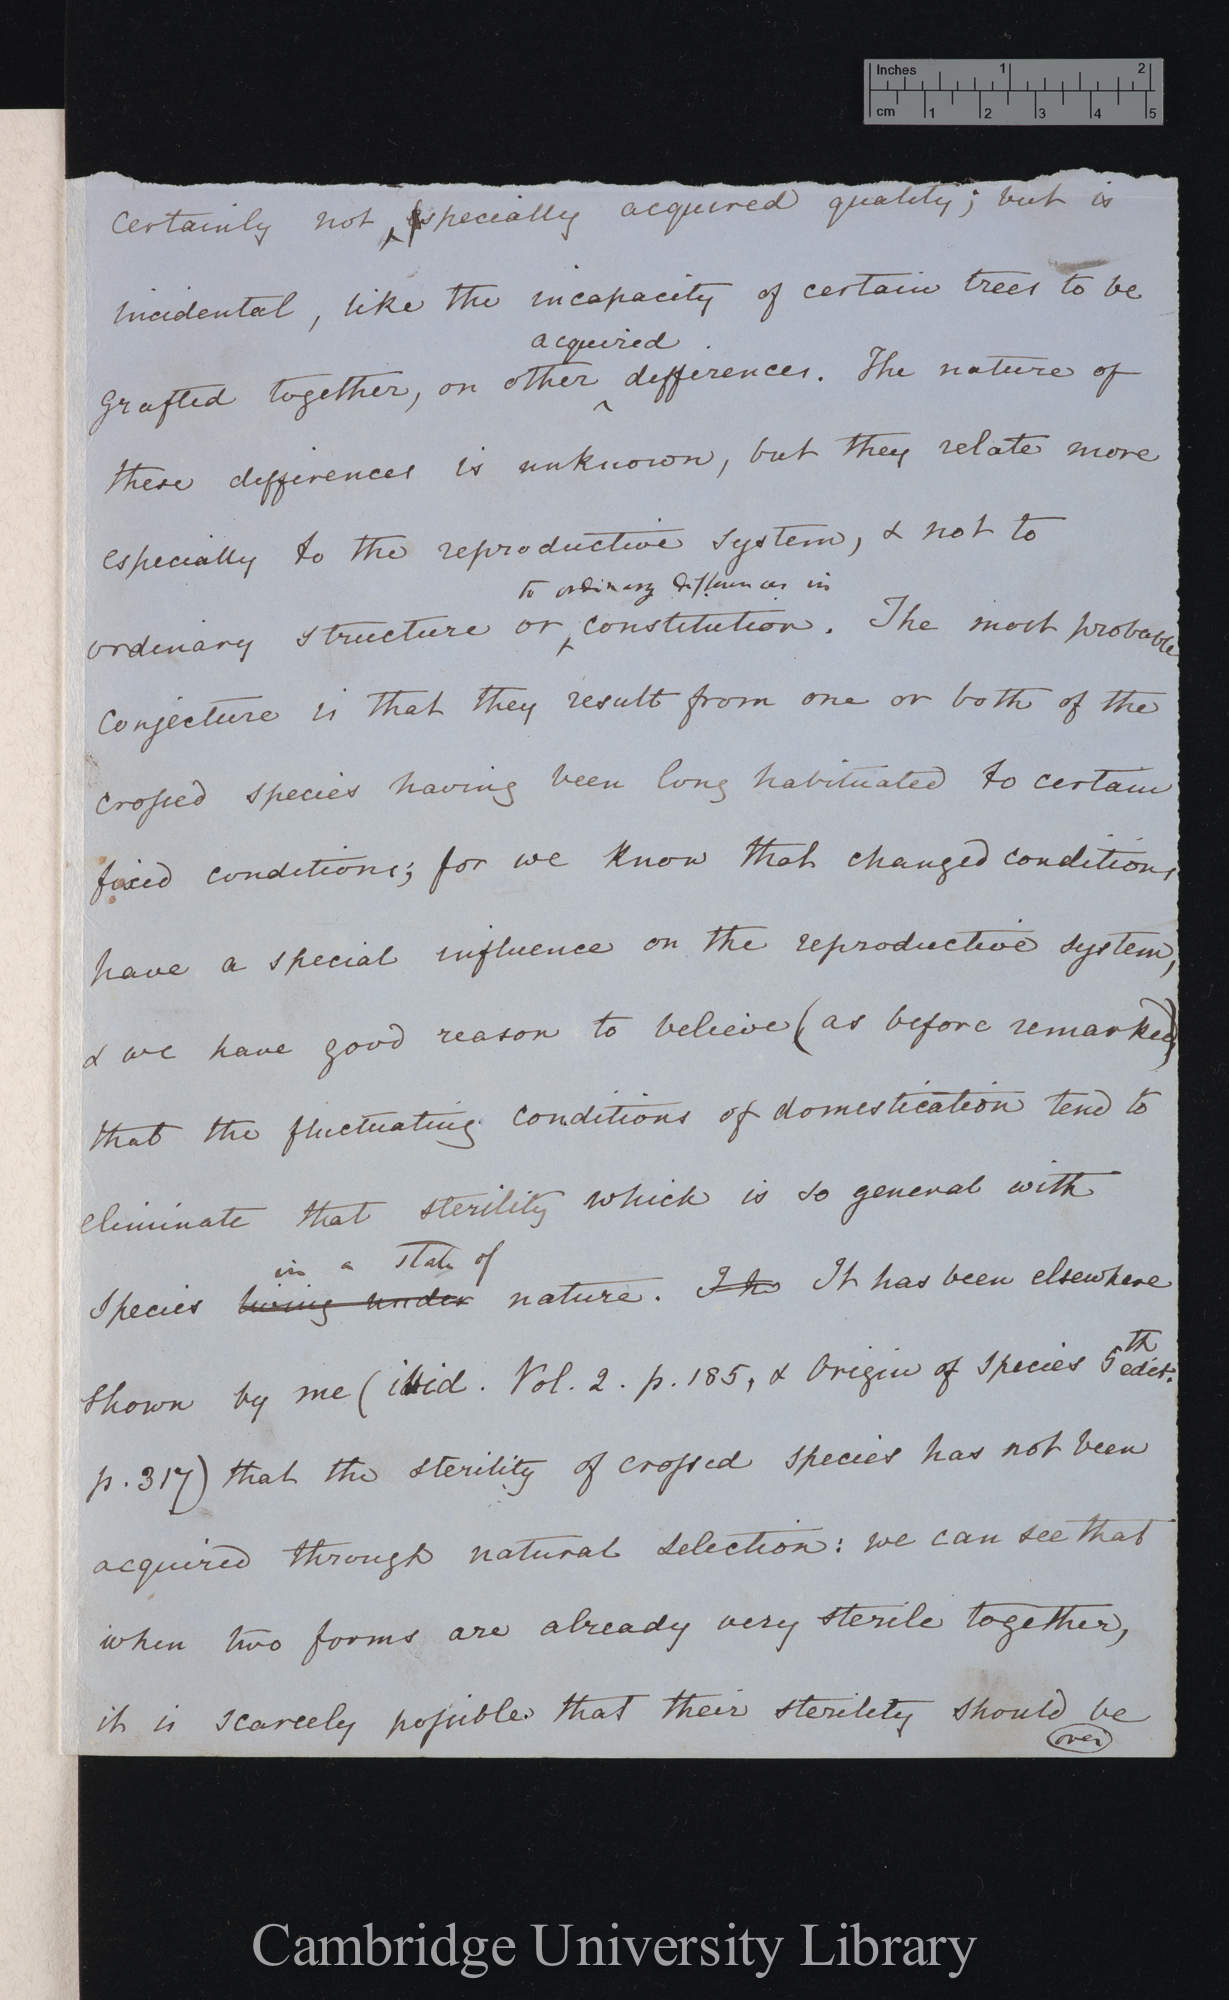 Inches 1 2
cm 1 2 3 4 5
certainly not specially acquired quality; but is
incidental, like the incapacity of certain trees to be
acquired
grafted together, on other differences. The nature of
these differences is unknown, but they relate more
especially to the reproductive system, & not to
to ordinary differences in
ordinary structure or constitution. The most probable
conjecture is that they result from one or both of the
crossed species having been long habituated to certain
fixed conditions; for we know that changed conditions
have a special influence on the reproductive system,
& we have good reason to believe (as before remarked)
that the fluctuating conditions of domestication tend to
eliminate that sterility which is so general with
in a state of
species living under nature. It has been elsewhere
shown by me (ibid. Vol. 2. p. 185, & Origin of Species 5th edit.
p. 317) that the sterility of crossed species has not been
acquired through natural selection: we can see that
when two forms are already very sterile together,
it is scarcely possible that their sterility should be
over
Cambridge University Library